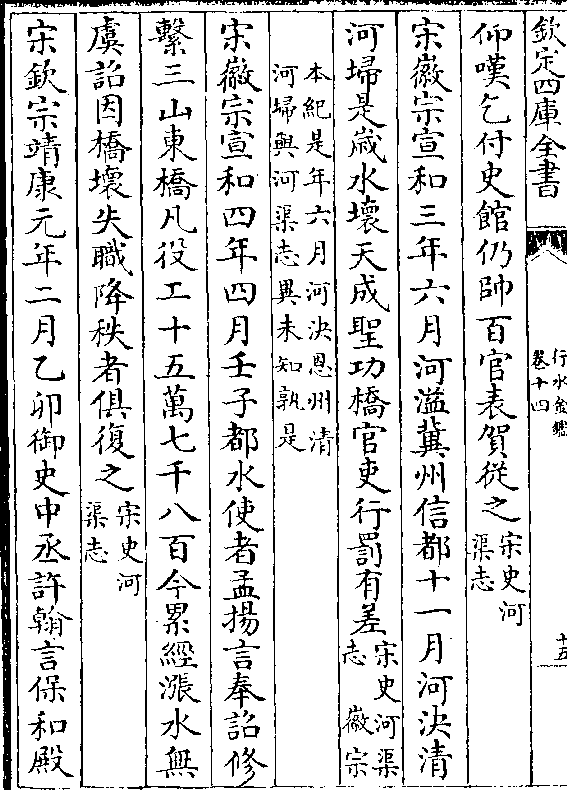 欽定四庫全書
行水金鑑
卷十四
十五
仰嘆乞付史館仍帥百官表賀從之宋史河渠志
宋徽宗宣和三年六月河溢冀州信都十一月河決清
河埽是歲水壞天成聖功橋官吏行罰有差宋史河渠志 徽宗
本紀是年六月河決恩州清河埽與河渠志異未知孰是
宋徽宗宣和四年四月壬子都水使者孟揚言奉詔修
繫三山東橋凡役工十五萬七千八百今累經漲水無
虞詔因橋壞失職降秩者俱復之宋史河渠志
宋欽宗靖康元年二月乙卯御史中丞許翰言保和殿